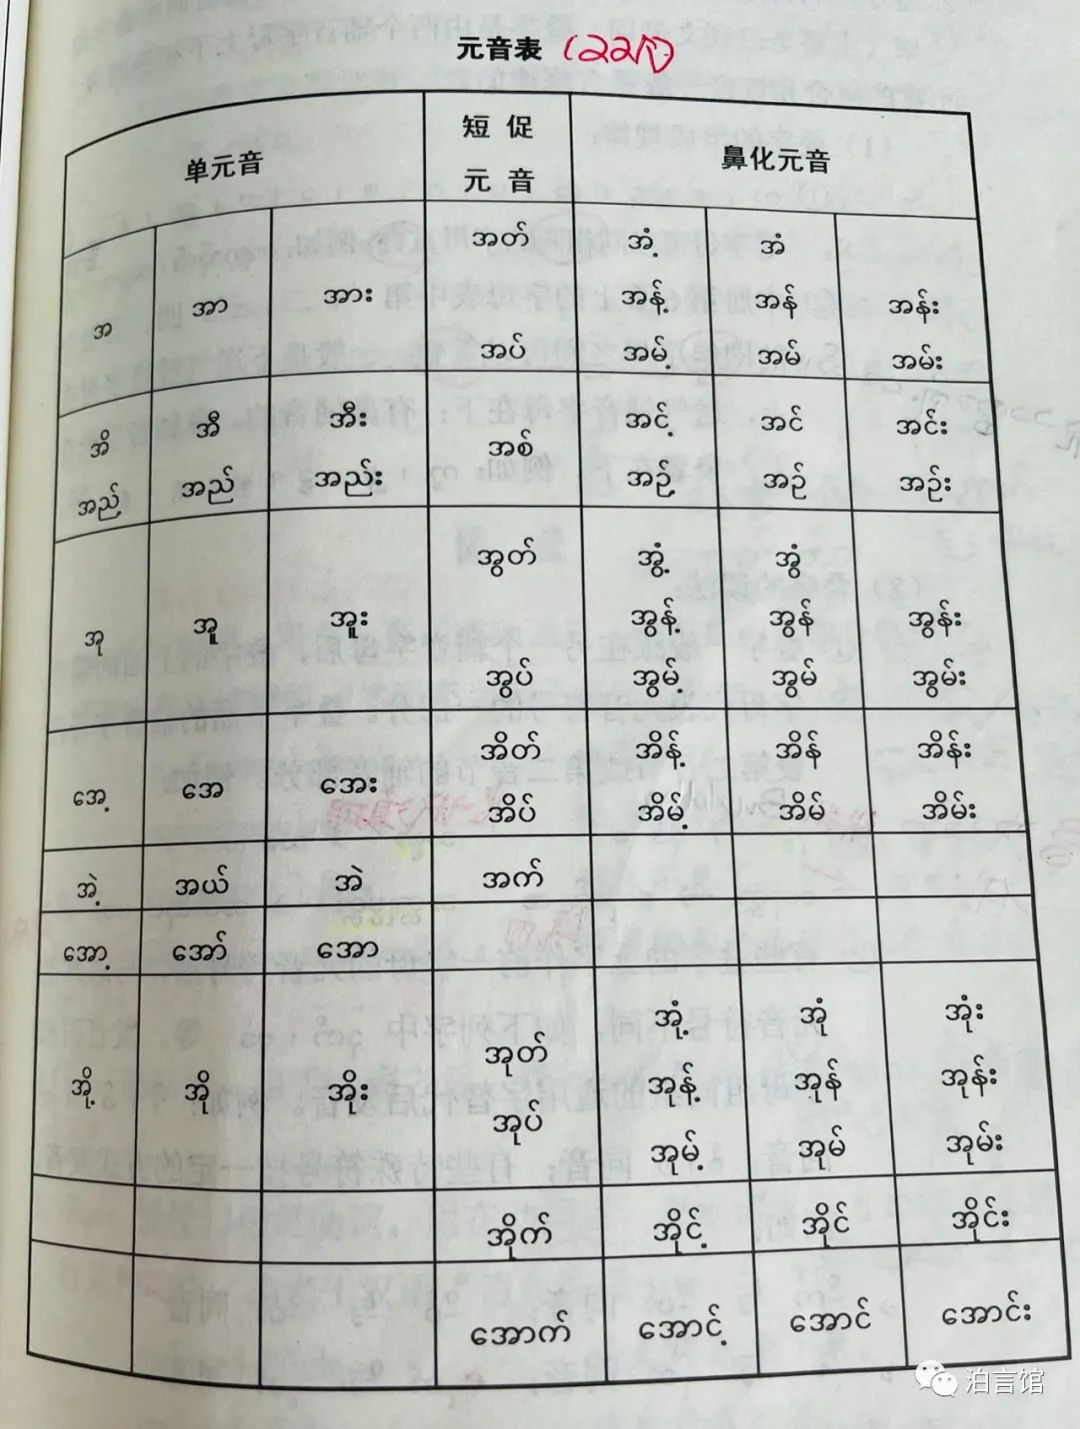 元音表 (22个)
单元音 短促元音 鼻化元音
အ အာ အား အတ် အံ့ အံ
အန့် အန် အန်း
အပ် အမ့် အမ် အမ်း
အိ အီ အီး အစ် အင့် အင် အင်း
အည့် အည် အည်း အဉ့် အဉ် အဉ်း
အု အူ အူး အွတ် အွံ့ အွံ
အွန့် အွန် အွန်း
အွပ် အွမ့် အွမ် အွမ်း
အေ့ အေ အေး အိတ် အိန့် အိန် အိန်း
အိပ် အိမ့် အိမ် အိမ်း
အဲ့ အယ် အဲ အက်
အော့ အော် အော
အို့ အို အိုး အုတ် အုံ့ အုံ အုံး
အုန့် အုန် အုန်း
အုပ် အုမ့် အုမ် အုမ်း
အိုက် အိုင့် အိုင် အိုင်း
အောက် အောင့် အောင် အောင်း
泊言馆